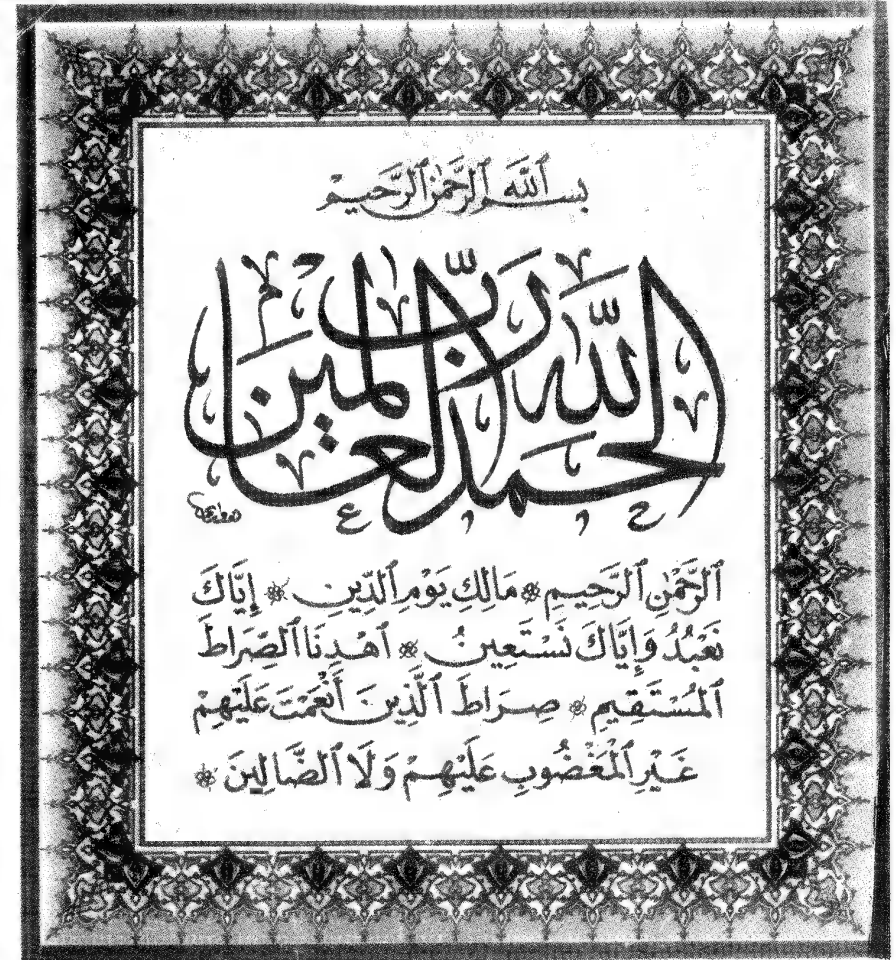 بسم ٱللَّه ٱلرَّحمٰن ٱلرَّحيم
الحمد للّٰه ربّ العالمين
ٱلرَّحْمٰنِ ٱلرَّحِيمِ ❁ مَالِكِ يَوْمِ ٱلدِّينِ ❁ إِيَّاكَ
نَعْبُدُ وَإِيَّاكَ نَسْتَعِينُ ❁ ٱهْدِنَا ٱلصِّرَاطَ
ٱلْمُسْتَقِيمِ ❁ صِرَاطَ ٱلَّذِينَ أَنْعَمْتَ عَلَيْهِمْ
غَيْرِ ٱلْمَغْضُوبِ عَلَيْهِمْ وَلَا ٱلضَّالِينَ ❁